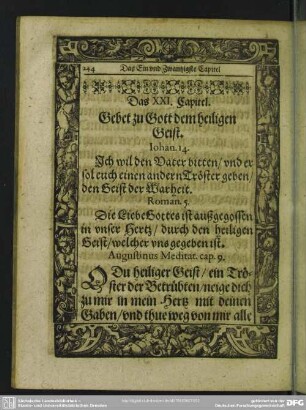 244 Das Ein vnd Zwantzigste Capitel
Das XXI. Capitel.
Gebet zu Gott dem heiligen
Geist.
Iohan. 14.
Ich wil den Vater bitten/ vnd er
sol euch einen andern Tröster geben/
den Geist der Warheit.
Roman. 5.
Die Liebe Gottes ist außgegossen
in vnser Hertz/ durch den heiligen
Geist/ welcher vns gegeben ist.
Augustinus Meditat. cap. 9.
O Du heiliger Geist/ ein Trö-
ster der Betrübten/ neige dich
zu mir in mein Hertz mit deinen
Gaben/ vnd thue weg von mir alle